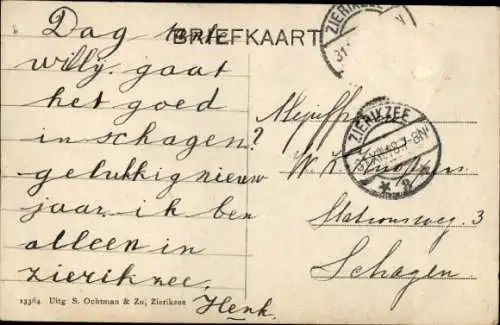 BRIEFKAART
Dag tante
willy. gaat
het goed
in schagen?
gelukkig nieuw
jaar. ik ben
alleen in
zierikzee.
Henk.
13364 Uitg S. Ochtman & Zn, Zierikzee
ZIERIKZEE
31
ZIERIKZEE
Mejuffr
W. K.
Stationsweg 3
Schagen